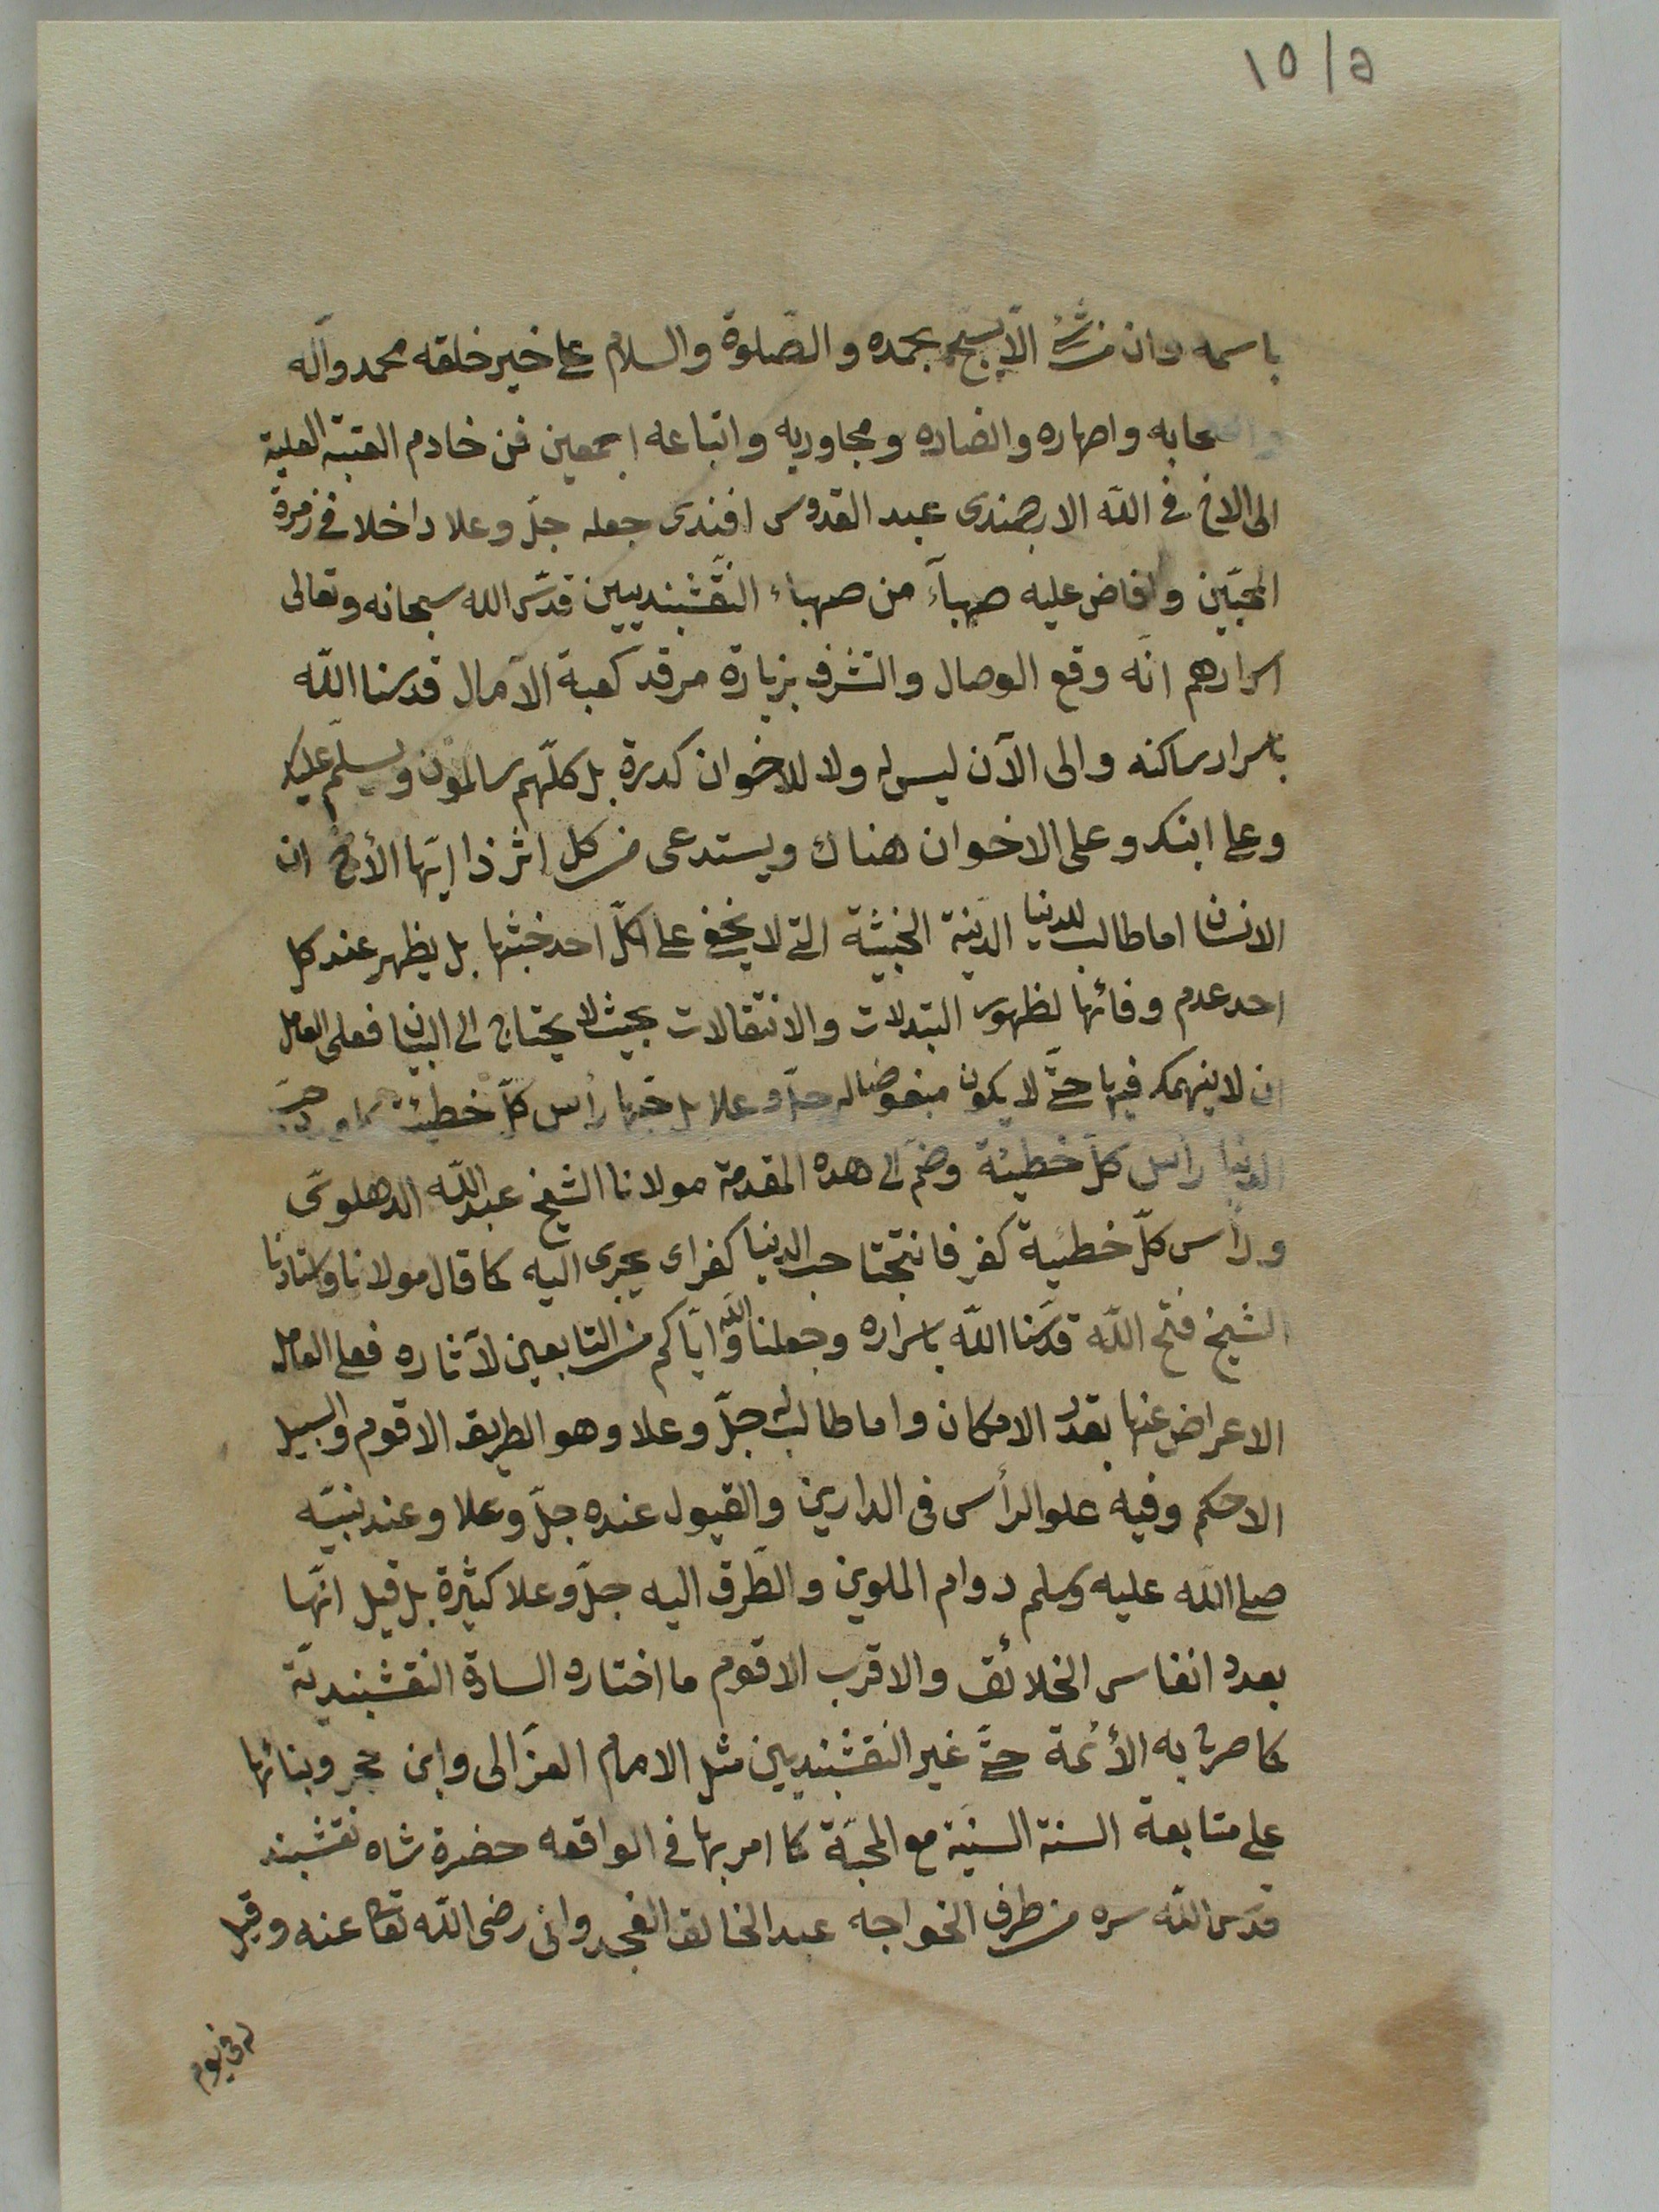 ١٥/٥
باسمه وان من شئ الا يسبح بحمده والصلوة والسلام على خير خلقه محمد وآله
واصحابه واصهاره وانصاره ومجاوريه واتباعه اجمعين فمن خادم العتبة العلية
الى الاخ فى الله الارجمندى عبد القدوس افندى جعله جلّ وعلا داخلا فى زمرة
المحبّين وافاض عليه صهبآء من صهباء النقشبنديين قدّس الله سبحانه وتعالى
اسرارهم انه وقع الوصال والتشرف بزيارة مرقد كعبة الآمال قدسنا الله
باسرار ساكنه والى الآن ليس له ولا للاخوان كدرة بل كلّهم سالمون ويسلّم عليك
وعلى ابنك وعلى الاخوان هناك ويستدعى من كل اثر ذا ايّها الأخ ان
الانسان اما طالب للدنيا الدنية الخبيثة التى لا يخفى على كلّ احد خبثها بل يظهر عند كل
احد عدم وفائها لظهور التبدلات والانتقالات بحيث لا يحتاج الى البيان فعلى العاقل
ان لا ينهمك فيها حتّى لا يكون مبغوضا له جلّ وعلا بل حبّها رأس كلّ خطيئة كما ورد حبّ
الدنيا رأس كلّ خطيئة وضمّ الى هذه المقدمة مولانا الشيخ عبد الله الدهلوى
ورأس كلّ خطيئة كفر فانتجتا حب الدنيا كفر اى يجرى اليه كما قال مولانا واستادنا
الشيخ فتح الله قدّسنا الله باسراره وجعلنا الله واياكم من التابعين لآثاره فعلى العاقل
الاعراض عنها بقدر الامكان واما طالب له جلّ وعلا وهو الطريق الاقوم والسبيل
الاحكم وفيه علو الرأس فى الدارين والقبول عنده جلّ وعلا وعند نبيّه
صلى الله عليه وسلم دوام الملوين والطّرق اليه جلّ وعلا كثيرة بل قيل انّها
بعدد انفاس الخلائق والاقرب الاقوم ما اختاره السادة النقشبنديّة
كما صرح به الأئمة حتّى غير النقشبنديين مثل الامام الغزّالى وابن حجر وبنائها
على متابعة السنة السنيّة مع المحبّة كما امر بها فى الواقعه حضرة شاه نقشبند
قدّس الله سره من طرف الخواجه عبد الخالق الغجدوانى رضى الله تعالى عنه وقيل
له فى يوم